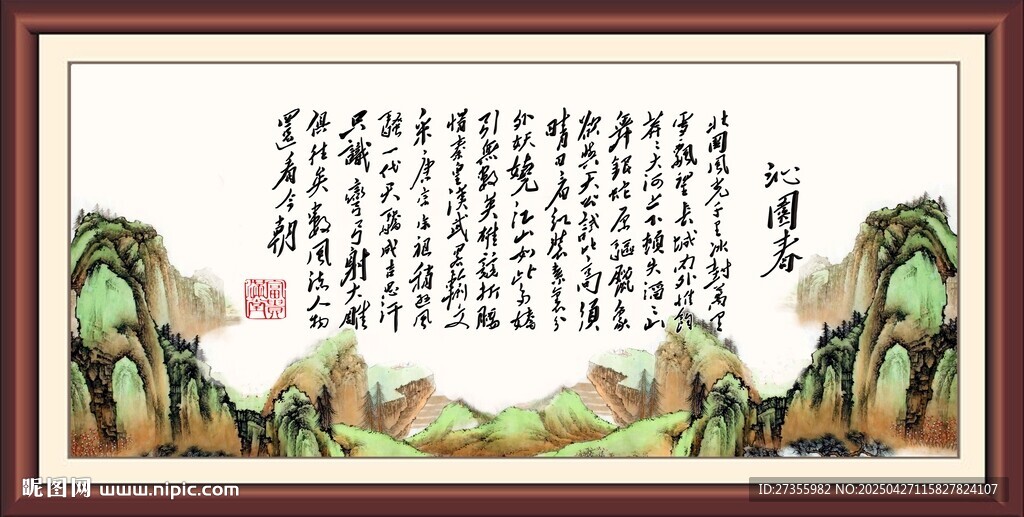 沁園春
北國風光千里冰封萬里
雪飄望長城內外惟餘
莽々大河上下頓失滔々山
舞銀蛇原驅蠟象
欲與天公試比高須
晴日看紅裝素裹分
外妖嬈江山如此多嬌
引無數英雄競折腰
惜秦皇漢武畧輸文
采唐宗宋祖稍遜風
騷一代天驕成吉思汗
只識彎弓射大雕
俱往矣數風流人物
還看今朝
昵图网 www.nipic.com
ID:27355982 NO:20250427115827824107